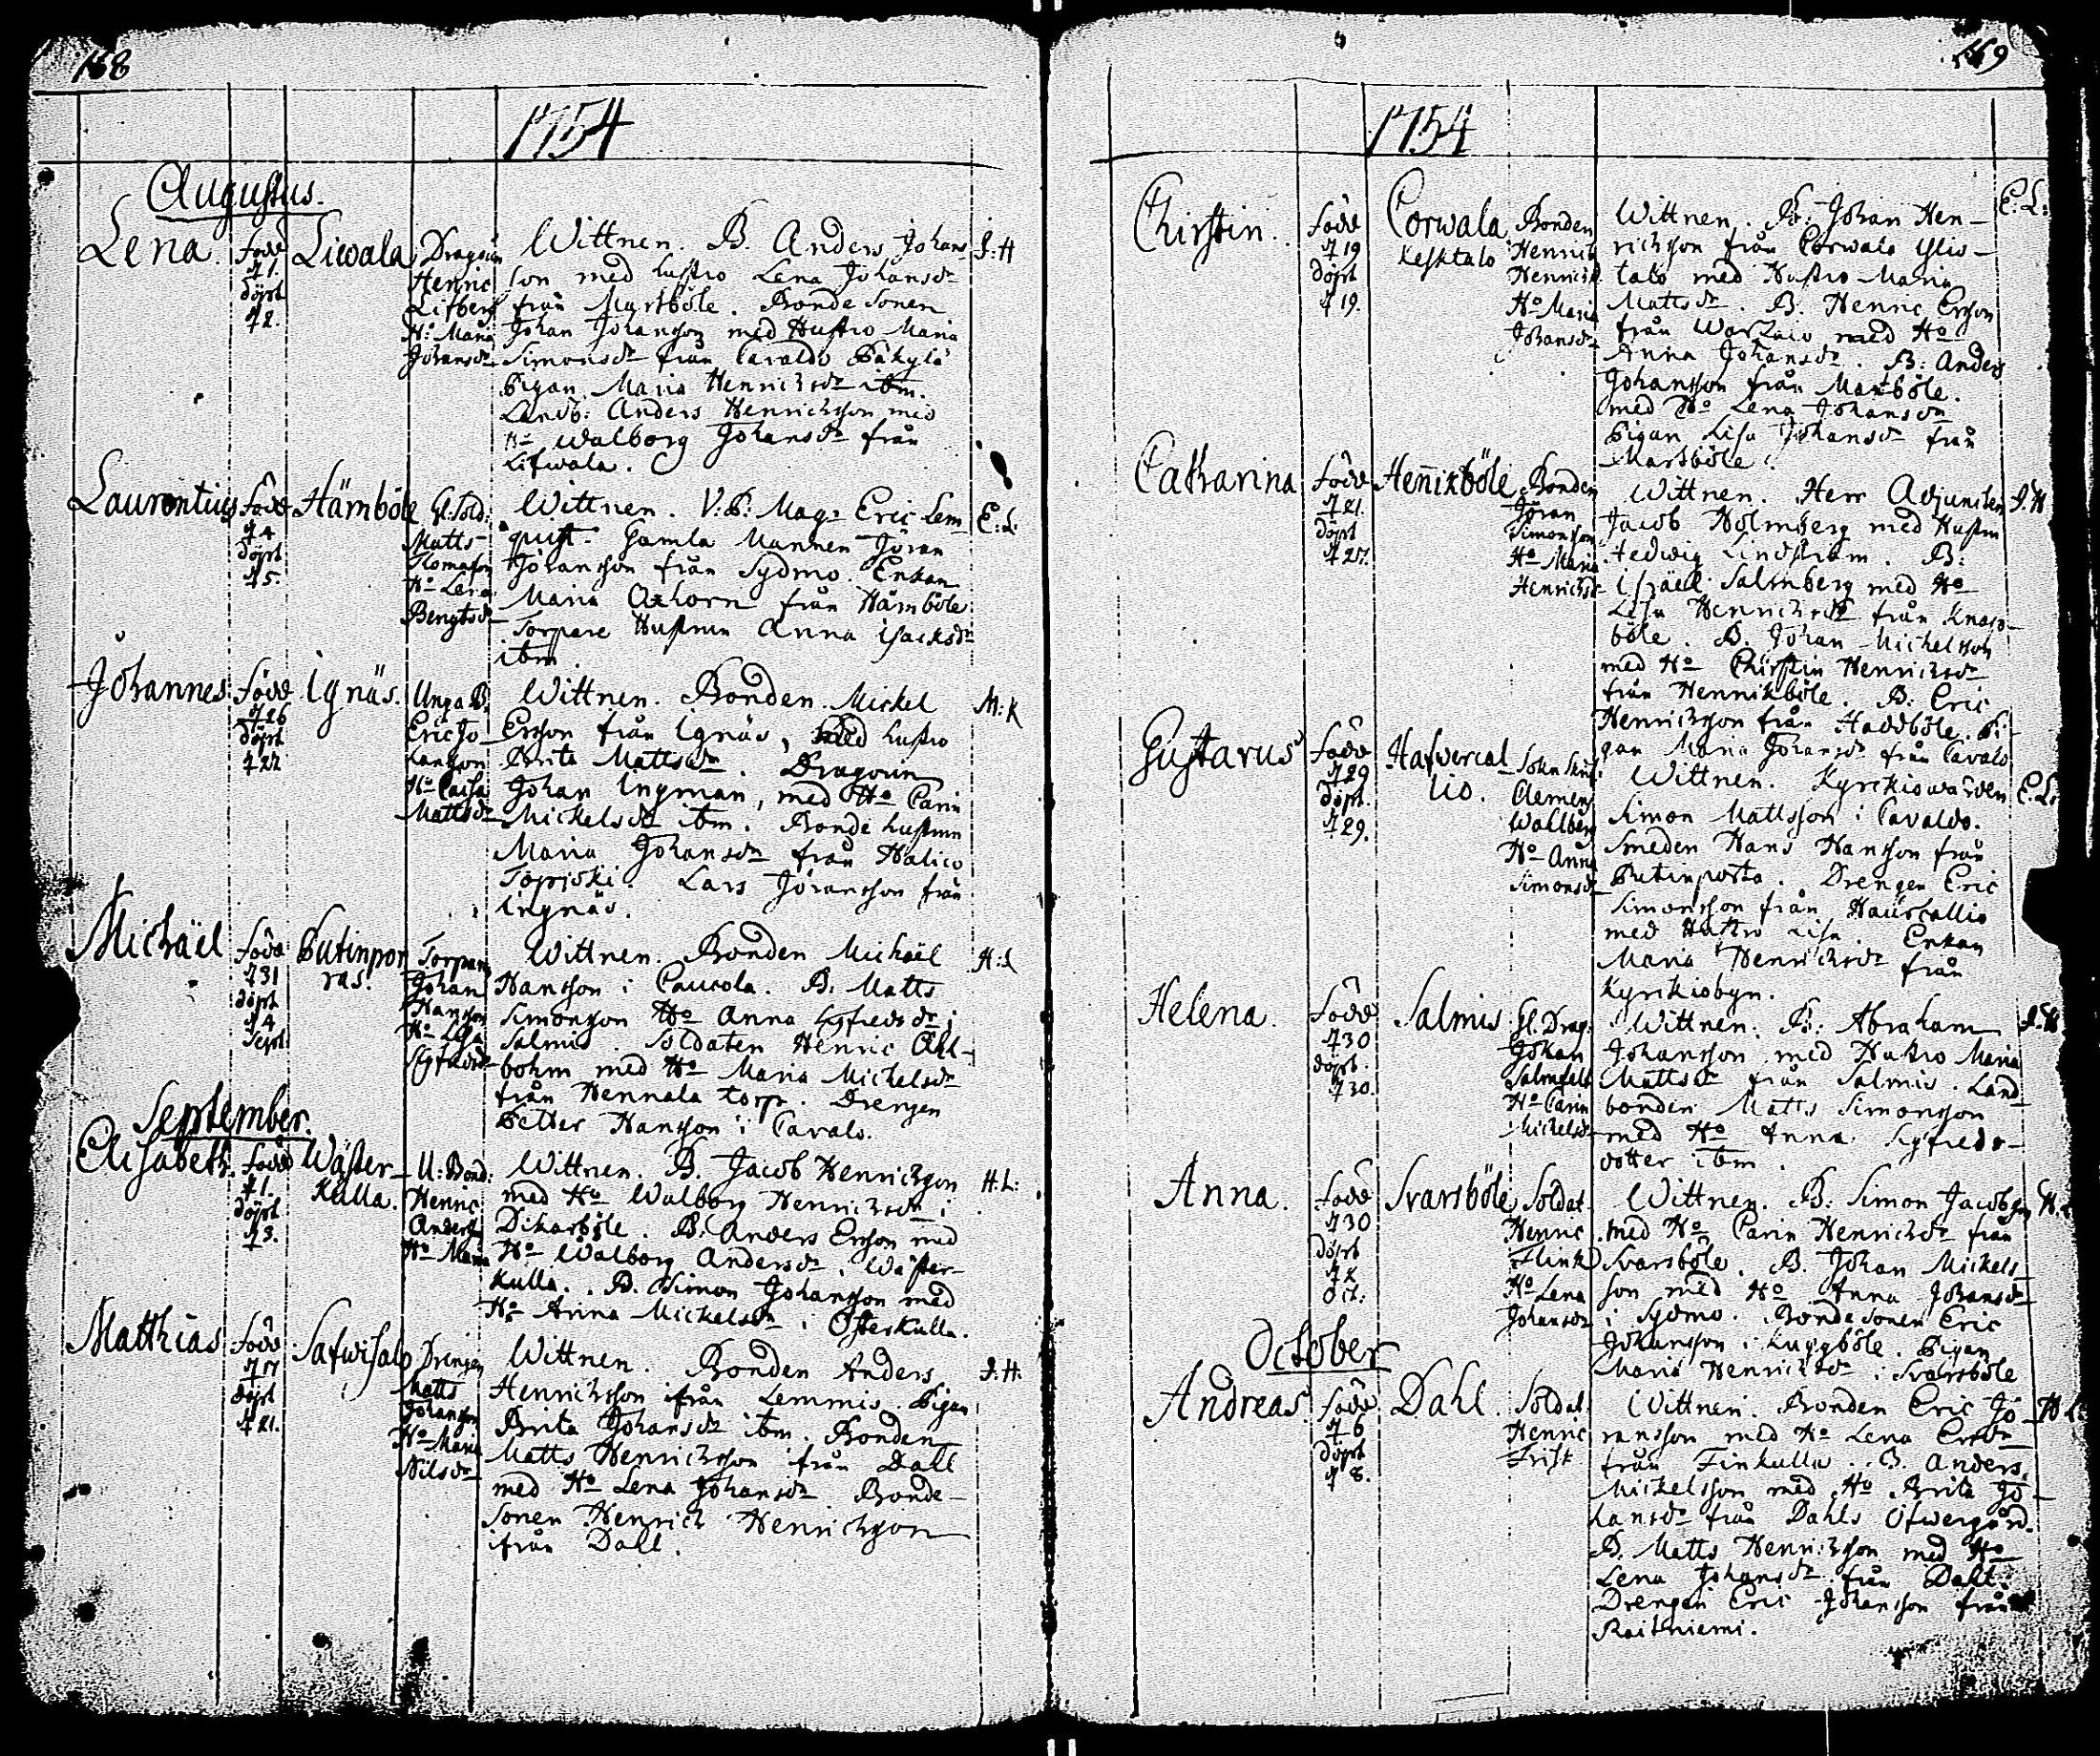 168
1754
Augustus.
Lena. Född d. 1. döpt d. 2. Liwala Dragoun Henric Lifberg Ho Maria Johansdr
Wittnen. B. Anders Johans-
son med hustro Lena Johansdr
från Myrsböle. Bonde Sonen
Johan Johansson med Hustro Maria
Simonsdr från Cavaldo Päkylö
Pigan Maria Henrichsdr ibm.
Landb: Anders Henrichsson med
Ho Walborg Johansdr från
Lifwala.
J: H
Laurentius Född d. 4 döpt d. 5. Hämböle Gl. Sold: Matts Thomasson Ho Lena Bengtsdr
Wittnen. V. P. Magr Eric Lem-
quist. Gamla Mannen Jöran
Jöransson från Sydmo. Enkan
Maria Axhorn från Hämböle
Torpare Hustrun Anna Isacksdr
ibm.
E: L:
Johannes Född d. 26 döpt d. 27 Ignäs. Unga B. Eric Johansson Ho Caisa Mattsdr
Wittnen. Bonden Mickel
Ersson från Ignäs, med hustro
Brita Mattsdr. Dragoun
Johan Ingman, med Ho Carin
Mickelsdr ibm. Bonde hustrun
Maria Johansdr från Halico
Topjoki. Lars Jöransson från
Ingnäs.
M: K
Michäel Född d. 31 döpt d. 4 Sept. Putinpor ras. Torparen Johan Hansson Ho Lisa Sigfredsdr
Wittnen. Bonden Michäel
Hansson i Caucola. B. Matts
Simonsson Ho Anna Sigfredsdr i
Salmis. Soldaten Henric Ahl-
bohm med Ho Maria Mickelsdr
från Hennala torp. Drengen
Petter Hansson i Cavalo.
H: L
September.
Elisabeth. Född d. 1. döpt d. 3. Wäster-
Kulla. U: Bond: Henric Andersson Ho Maria
Wittnen. B. Jacob Henrichsson
med Ho Walborg Henrichsdr i
Dikarböle. B. Anders Ersson med
Ho Walborg Andersdr. Wäster-
kulla. B. Simon Johansson med
Ho Anna Mickelsdr i Österkulla.
H: L:
Matthias Född d. 17 döpt d. 21. Safwisalo Drengen Matts Johansson Ho Maria Nilsdr
Wittnen. Bonden Anders
Henrichsson ifrån Lemmis. Pigan
Brita Johansdr ibm. Bonden
Matts Henrichsson ifrån Dahl
med Ho Lena Johansdr. Bonde-
Sonen Henrich Henrichsson
ifrån Dahl.
J. H.
169
1754
Chirstin. Född d. 19 döpt d. 19. Corwala Kesktalo Bonden Henric Henrichs. Ho Maria Johansdr
Wittnen. B: Johan Hen-
richsson från Corwala Ylis-
talo med Hustro Maria
Mattsdr. B. Henric Ersson
från med Ho
Anna Johansdr. B: Anders
Johansson från Marsböle.
med Ho Lena Johansdr
Pigan Lisa Johansdr från
Marsböle.
E: L:
Catharina Född d. 21. döpt d. 27. Hennixböle Bonden Jöran Simonsson Ho Maria Henrichsdr
Wittnen. Herr Adjuncten
Jacob Holmberg med Hustru
Hedwig Lindström. B:
Israël Salmberg med Ho
Lisa Henrichsdr från Knaps-
böle. B. Johan Michelsson
med Ho Chirstin Henrichsdr
från Hennikböle. B. Eric
Henrichsson från Haddböle. Pi-
gan Maria Johansdr från Cavalo
J. H
Gustavus Född d. 29 döpt. d. 29. Hafwercal
lio. Clemens Wallberg Ho Anna Simonsdr
Wittnen. Kyrckiowärden
Simon Mattsson i Cavaldo.
Smeden Hans Hansson från
Putinporta. Drengen Eric
Simonsson från Haurcallio
med Hustro Lisa. Enkan
Maria Henrichsdr från
Kyrckiobyn.
E. L:
Helena. Född d. 30 döpt. d. 30. Salmis Gl. Drag: Johan Salmfelt Ho Carin Mickelsdr
Wittnen. B: Abraham
Johansson med Hustro Maria
Mattsdr från Salmis. Land-
bonden Matts Simonsson
med Ho Anna Sigfreds-
dotter ibm.
J. H
Anna. Född d. 30 döpt d. 2 Oct: Svarsböle Soldat. Henric Flink Ho Lena Johansdr
Wittnen. B: Simon Jacobsson
med Ho Carin Henrichsdr från
Svarsböle. B. Johan Mickels-
son med Ho Anna Johansdr
i Sydmo. Bonde Sonen Eric
Johansson i Kuggböle. Pigan
Maria Henrichsdr i Svarsböle
October
Andreas. Född d. 6 döpt d. 8. Dahl. Soldat. Henric Frisk
Wittnen. Bonden Eric Jö-
ransson med Ho Lena Ersdr
från Finkulla. B. Anders
Mickelsson med Ho Brita Jo-
hansdr från Dahls Öfwergård.
B. Matts Henrichsson med Ho
Lena Johansdr från Dahl.
Drengen Eric Johansson från
Raithniemi.